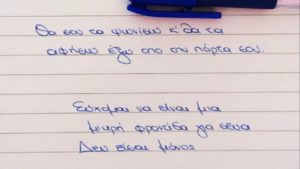 Θα σου τα ψωνίσω κ' θα τα
αφήσω έξω απο την πόρτα σου.
Εύχομαι να είναι μια
μικρή φροντίδα για σένα
Δεν είσαι μόνος